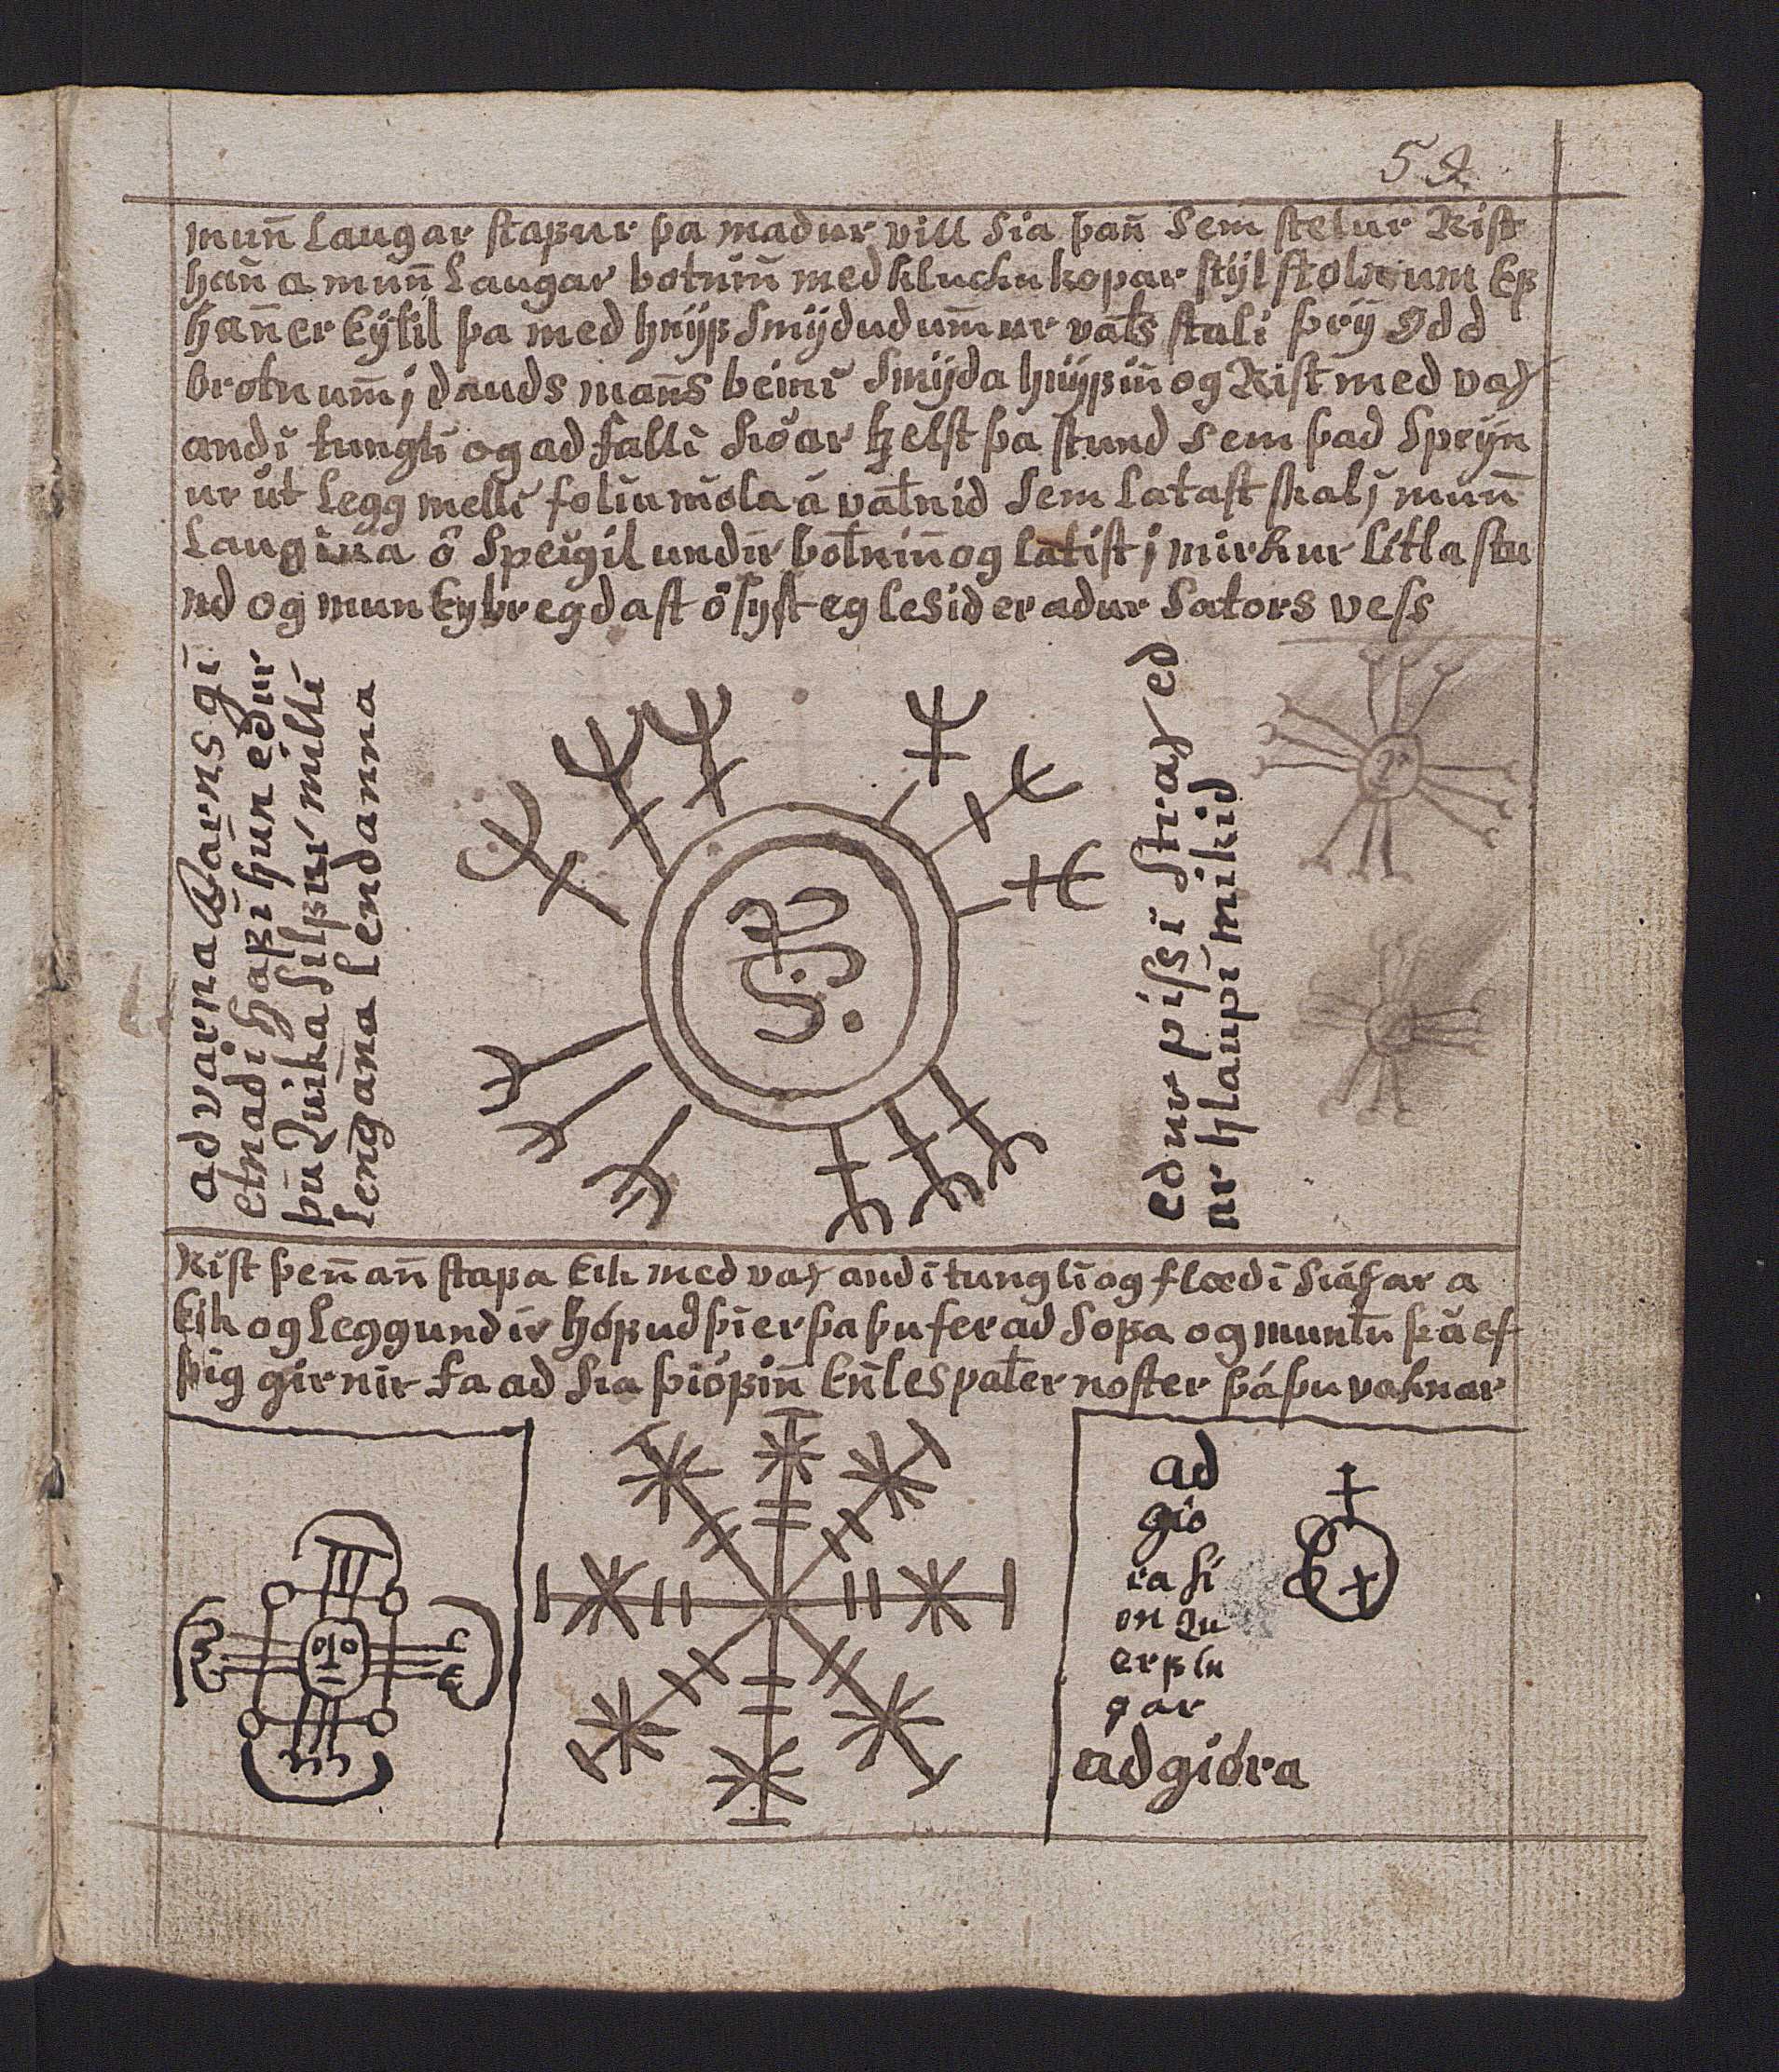 52
munn̄ Laugar stapur þa madur vill sia þan̄ sem stelur Rist
han̄ a mun̄ Laugar botnin̄ med kluchu kopar stijl stolnum Ep
han̄ er Eÿ til þa med hnijp smijdudum̄ ur vats stali þrij Odd
brotnum̄ j dauds man̄s beini smijda hnijpin̄ og Rist med vax
andi tungli og ad falli siöar helst þa stund sem þad Speijn
ur ut Legg melli foliu mola á vatnid sem Latast skal j mun̄
Laugina ö Speigil undir botnin̄ og latist j mirkur litla stu
nd og mun Ey bregdast ö syst eg lesid er adur Sators vess
ad varna Barns gi
etnadi hapi hun edur
þu Quika silpur milli
lengana lendanna
edur pissi strax ed
ur hlaupi mikid
Rist þen̄an̄ stapa Eik med vaxandi tungli og flœdi siáfar a
Eik og Legg undir höpud þier þa þu fer ad sopa og muntu þá ef
þig girnir fa ad sia þiöpin̄ En̄ les pater noster þá þu vaknar
ad
gio
ia si
on Qu
erplu
gar
ad gióra